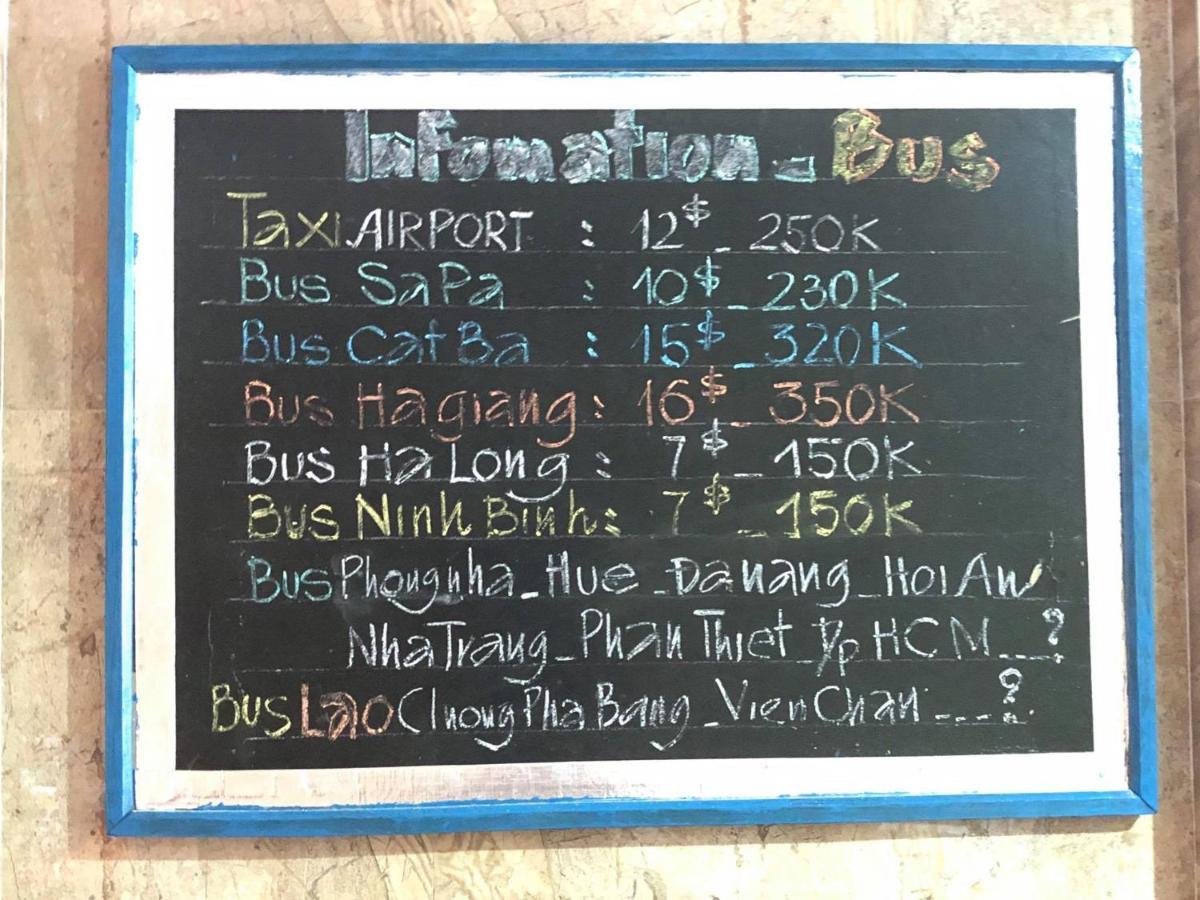 Infomation - Bus
Taxi AIRPORT : 12$ - 250K
Bus SaPa : 10$ - 230K
Bus Cat Ba : 15$ - 320K
Bus Hagiang : 16$ - 350K
Bus Ha Long : 7$ - 150K
Bus Ninh Binh : 7$ - 150K
Bus Phongnha - Hue - Da nang - Hoi An
Nha Trang - Phan Thiet T/p HCM ...?
Bus Lao (Lnong Pha Bang - Vien Chan ----?